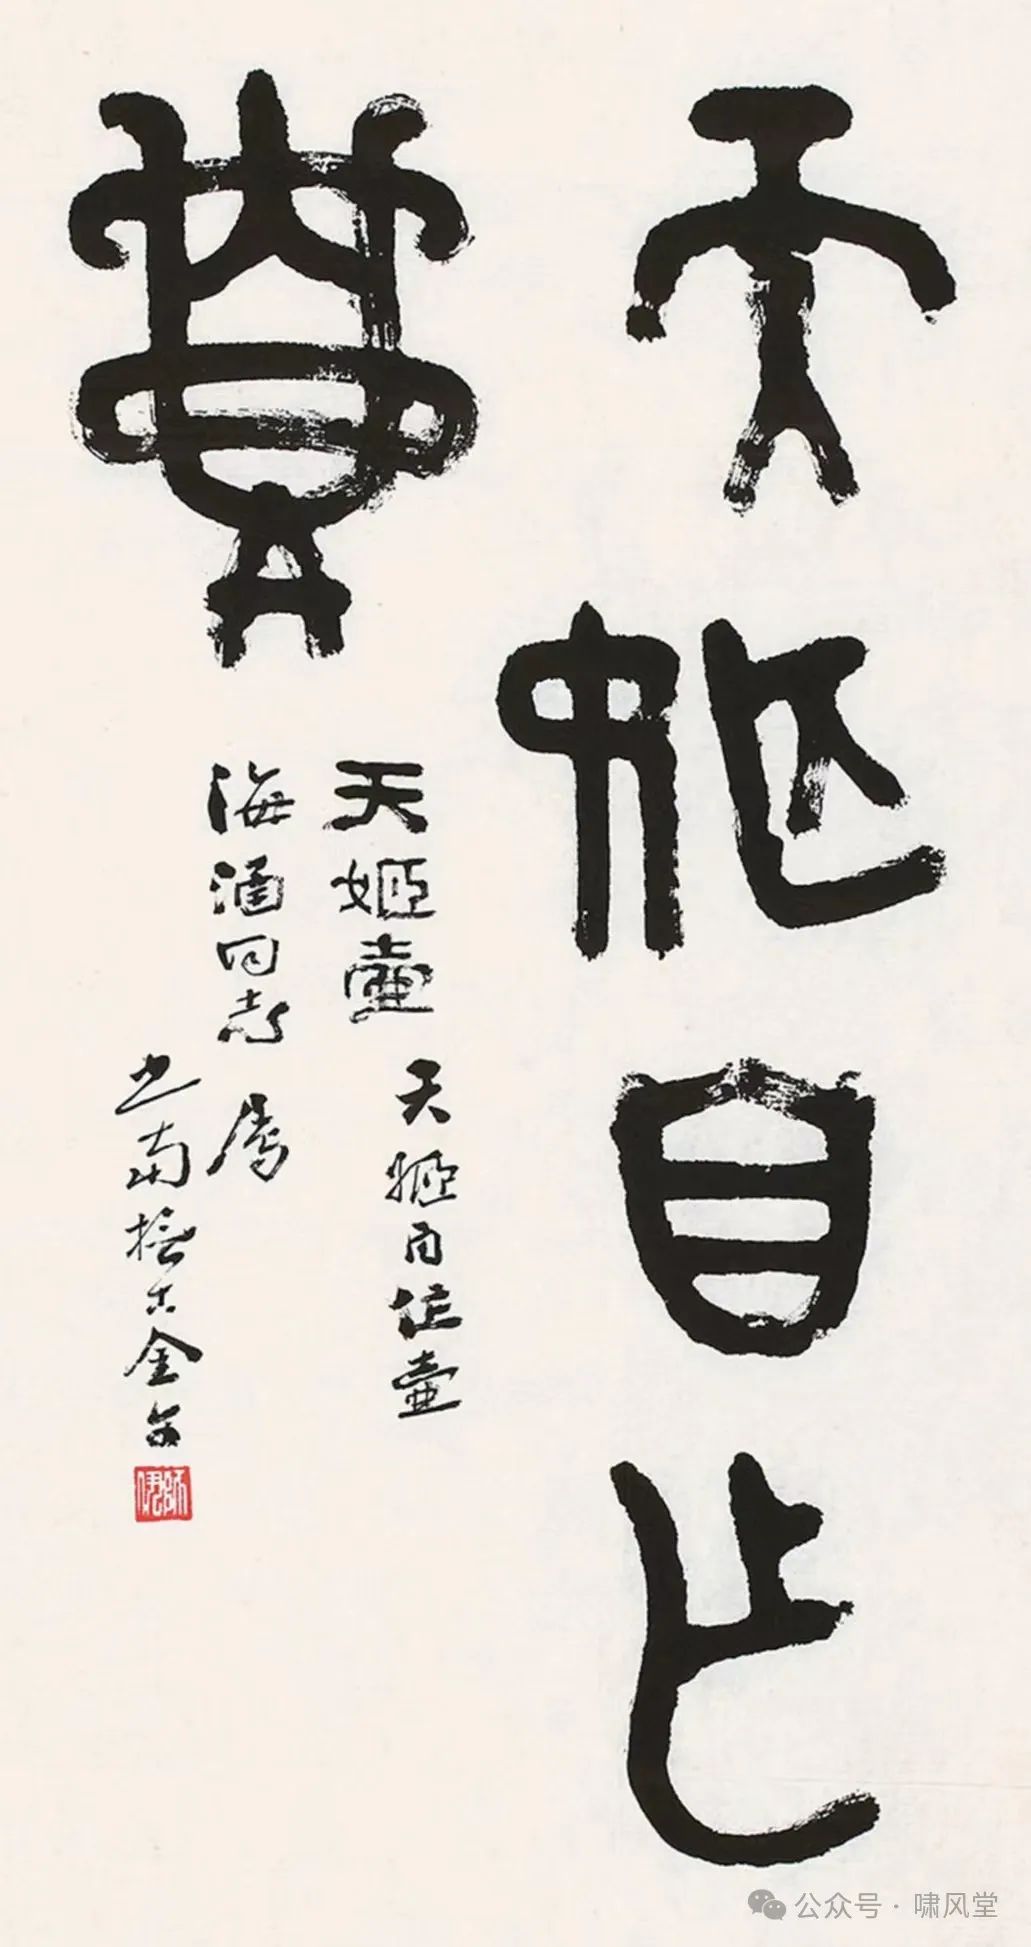 天姬自乍
壺
天姬壺
天姬自作壺
海涵同志屬
南撫古金文
公众号·啸风堂